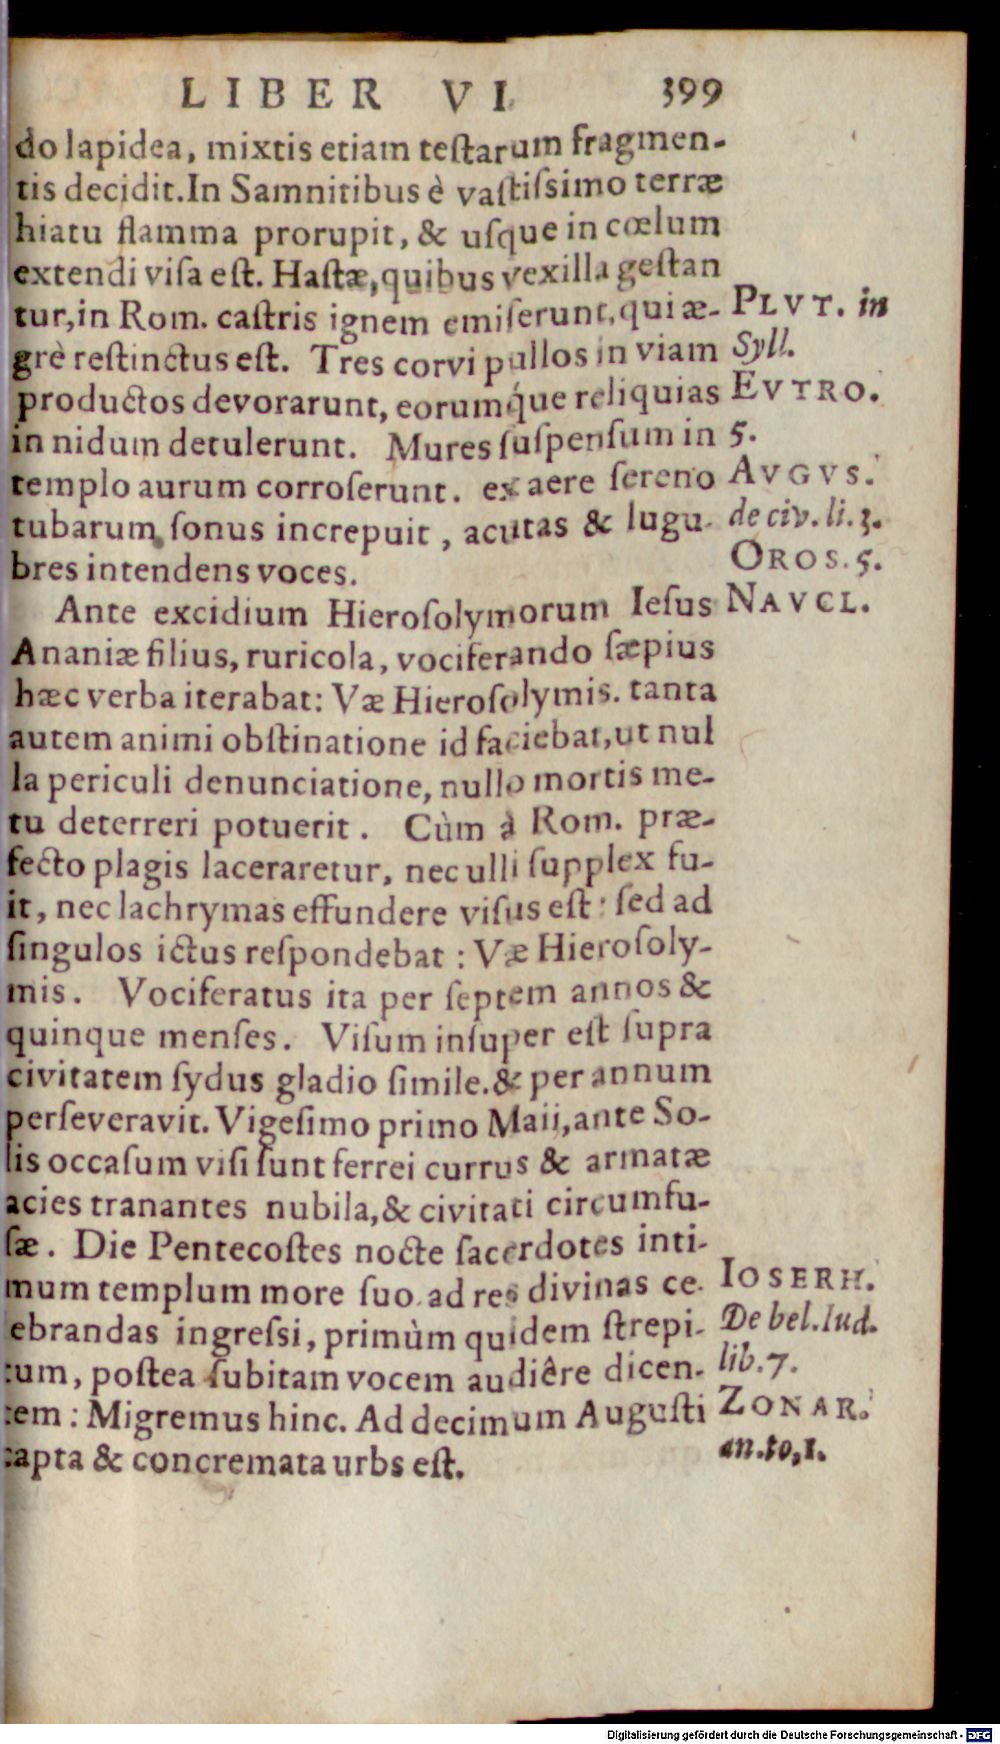 LIBER VI. 399
do lapidea, mixtis etiam teſtarum fragmen-
tis decidit. In Samnitibus è vaſtiſsimo terræ
hiatu flamma prorupit, & uſque in cœlum
extendi viſa eſt. Haſtæ, quibus vexilla geſtan
tur, in Rom. caſtris ignem emiſerunt, qui æ-
grè reſtinctus eſt. Tres corvi pullos in viam
productos devorarunt, eorumq́ue reliquias
in nidum detulerunt. Mures ſuſpenſum in
templo aurum corroſerunt. ex aere ſereno
tubarum ſonus increpuit, acutas & lugu-
bres intendens voces.
PLVT. in
Syll.
EVTRO.
5.
AVGVS.
de civ. li. 3.
OROS. 5.
NAVCL.
Ante excidium Hieroſolymorum Ieſus
Ananiæ filius, ruricola, vociferando ſæpius
hæc verba iterabat: Væ Hieroſolymis. tanta
autem animi obſtinatione id faciebat, ut nul
la periculi denunciatione, nullo mortis me-
tu deterreri potuerit. Cùm à Rom. præ-
fecto plagis laceraretur, nec ulli ſupplex fu-
it, nec lachrymas effundere viſus eſt: ſed ad
ſingulos ictus reſpondebat: Væ Hieroſoly-
mis. Vociferatus ita per ſeptem annos &
quinque menſes. Viſum inſuper eſt ſupra
civitatem ſydus gladio ſimile. & per annum
perſeveravit. Vigeſimo primo Maii, ante So-
lis occaſum viſi ſunt ferrei currus & armatæ
acies tranantes nubila, & civitati circumfu-
ſæ. Die Pentecoſtes nocte ſacerdotes inti-
mum templum more ſuo ad res divinas ce-
ebrandas ingreſsi, primùm quidem ſtrepi-
tum, poſtea ſubitam vocem audiêre dicen-
tem: Migremus hinc. Ad decimum Auguſti
capta & concremata urbs eſt.
IOSERH.
De bel. Iud.
lib. 7.
ZONAR.
an. to, 1.
Digitalisierung gefördert durch die Deutsche Forschungsgemeinschaft - DFG